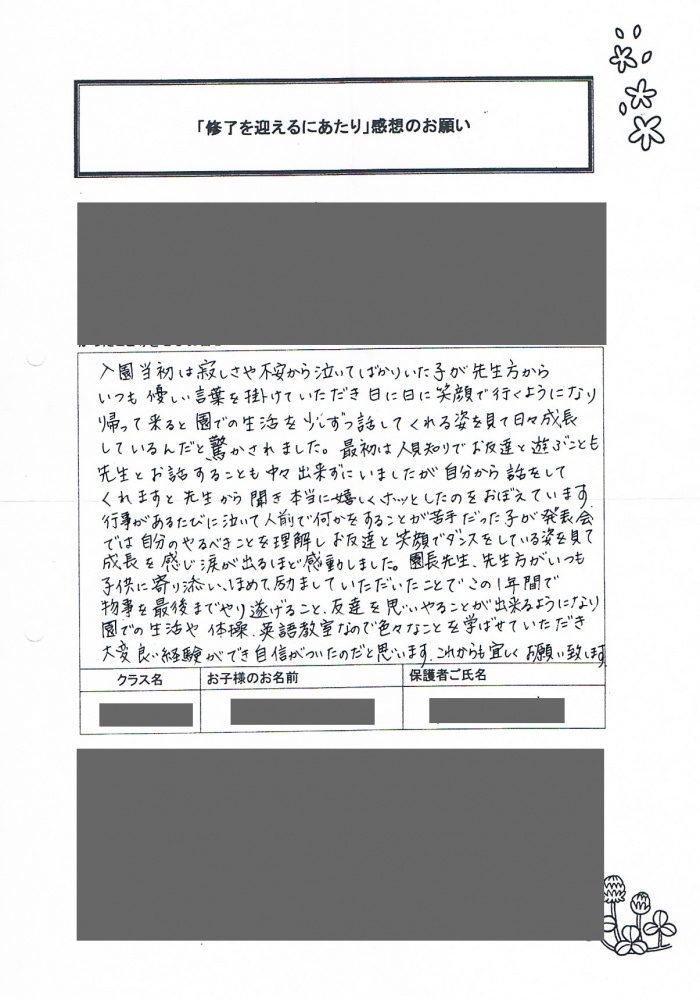 「修了を迎えるにあたり」感想のお願い
入園当初は寂しさや不安から泣いてばかりいた子が先生方から
いつも優しい言葉を掛けていただき日に日に笑顔で行くようになり
帰って来ると園での生活を少しずつ話してくれる姿を見て日々成長
しているんだと驚かされました。最初は人見知りでお友達と遊ぶことも
先生とお話することも中々出来ずにいましたが自分から話をして
くれますと先生から聞き本当に嬉しくホッとしたのをおぼえています。
行事があるたびに泣いて人前で何かをすることが苦手だった子が発表会
では自分のやるべきことを理解しお友達と笑顔でダンスをしている姿を見て
成長を感じ涙が出るほど感動しました。園長先生、先生方がいつも
子供に寄り添い、ほめて励ましていただいたことでこの1年間で
物事を最後までやり遂げること、友達を思いやることが出来るようになり
園での生活や体操、英語教室なので色々なことを学ばせていただき
大変良い経験ができ自信がついたのだと思います。これからも宜しくお願い致します
クラス名 お子様のお名前 保護者ご氏名